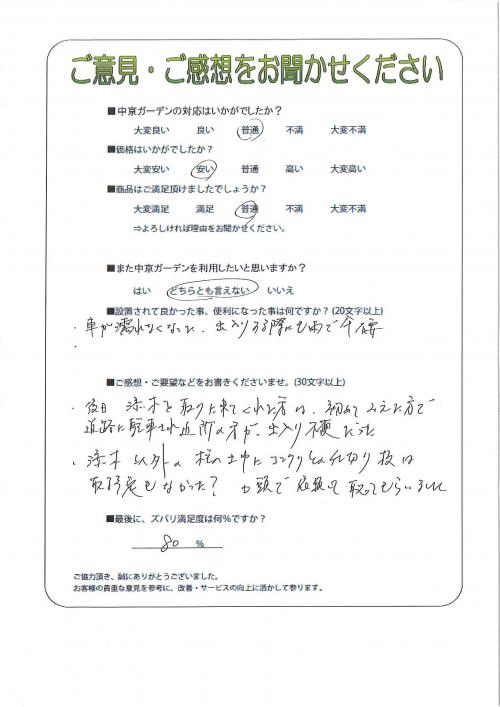 ご意見・ご感想をお聞かせください
■中京ガーデンの対応はいかがでしたか？
大変良い 良い 普通 不満 大変不満
■価格はいかがでしたか？
大変安い 安い 普通 高い 大変高い
■商品はご満足頂けましたでしょうか？
大変満足 満足 普通 不満 大変不満
⇒よろしければ理由をお聞かせください。
■また中京ガーデンを利用したいと思いますか？
はい どちらとも言えない いいえ
■設置されて良かった事、便利になった事は何ですか？(20文字以上)
・車が濡れなくなった、出入りする際にも雨で
・
■ご感想・ご要望などをお書きくださいませ。(30文字以上)
・後日 添木を取りに来てくれた方は、初めてみえた方で
道路に駐車され近所の方が、出入り不便だった
・添木以外の柱の土中にコンクリ止め仕切り板は
取る予定もなかった？ 口頭で依頼して取ってもらいました
■最後に、ズバリ満足度は何％ですか？
80 %
ご協力頂き、誠にありがとうございました。
お客様の貴重な意見を参考に、改善・サービスの向上に活かして参ります。